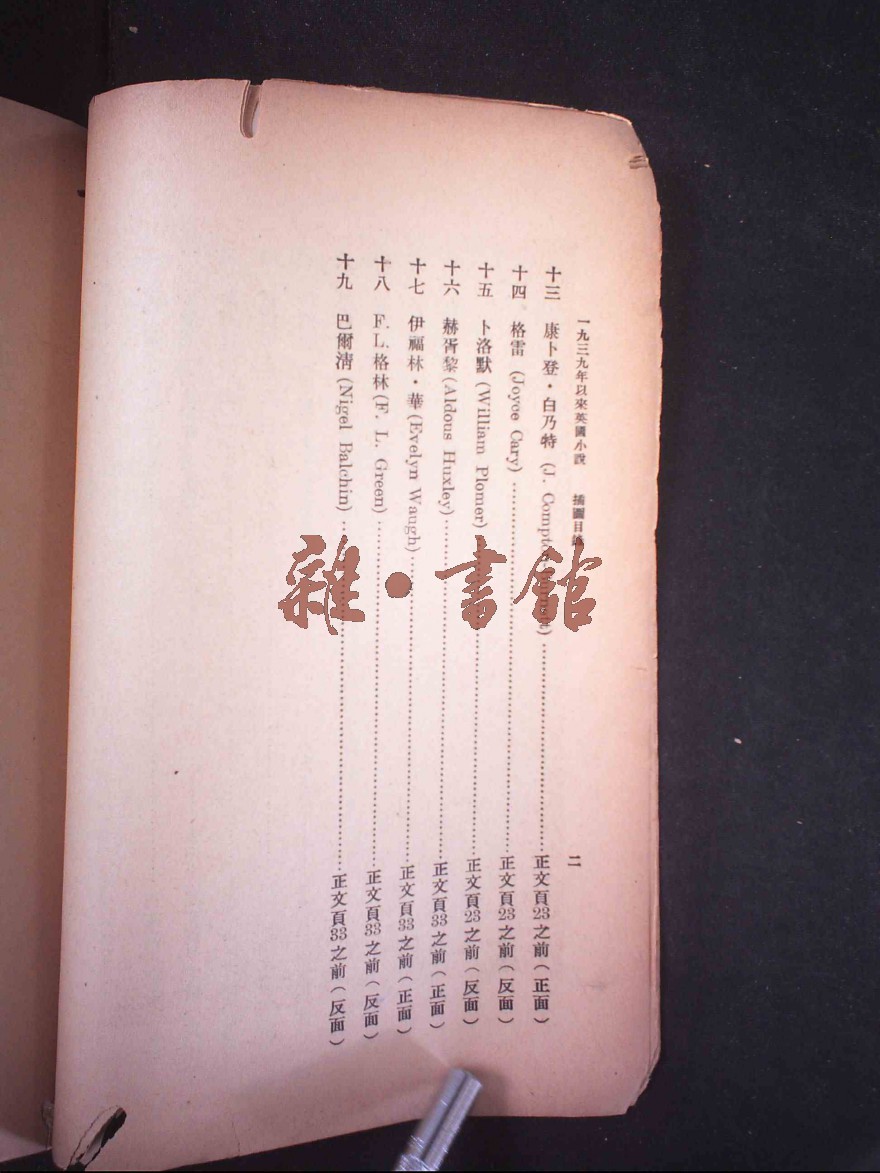 一九三九年以來英國小說 插圖目 二
十三 康卜登・白乃特 (J. Compton ……正文頁23之前(正面)
十四 格雷 (Joyce Cary)……正文頁23之前(反面)
十五 卜洛默 (William Plomer)……正文頁23之前(反面)
十六 赫胥黎 (Aldous Huxley)……正文頁33之前(正面)
十七 伊福林・華 (Evelyn Waugh)……正文頁33之前(正面)
十八 F. L. 格林 (F. L. Green)……正文頁33之前(反面)
十九 巴爾淸 (Nigel Balchin)……正文頁33之前(反面)
雜・書館